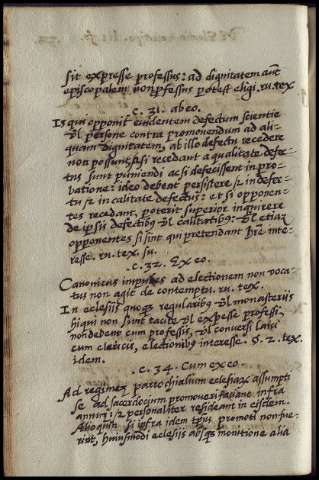 sit expresse professus: ad dignitatem aūt
episcopalem non pfessus potest eligi. ru. tex
c. 31. ab eo.
Is qui opponit euidentem defectum scientie
ul persone contra promouendum ad ali-
quam dignitatem, ab illo defectu recedere
non possunt, si recedant a qualitate defe-
tus sunt puniendi ac si defecissent in pro-
batione: ideo debent persistere in defec-
tu in calitate defectus: et si opponen-
tes recedant, poterit superior inquirere
de ipsis defectibus ul calitatibus: ul etiaz
opponentes si sint qui pretendant inte-
resse. ru. tex. in.
c. 32. Ex eo.
Canonicus ad electionem non voca-
tus non agit de contemptu. ru. tex.
In eclesiis quoque regularibus ul monasteriis
hi qui non sunt tacite ul expresse professi,
non debent cum professis, ul conuersi laici
cum clericis, electionibus interesse. §. 2. tex.
idem.
c. 34. Cum ex eo.
Ad regimen parrochialium eclesiaz assumpti
se ad sacerdocium promoueri faciant infra
annum: personaliter resideant in eisdem.
Alioquin si ipfra idem tpus promoti non fue-
rint, huiusmodi eclesiis absque monitione alia